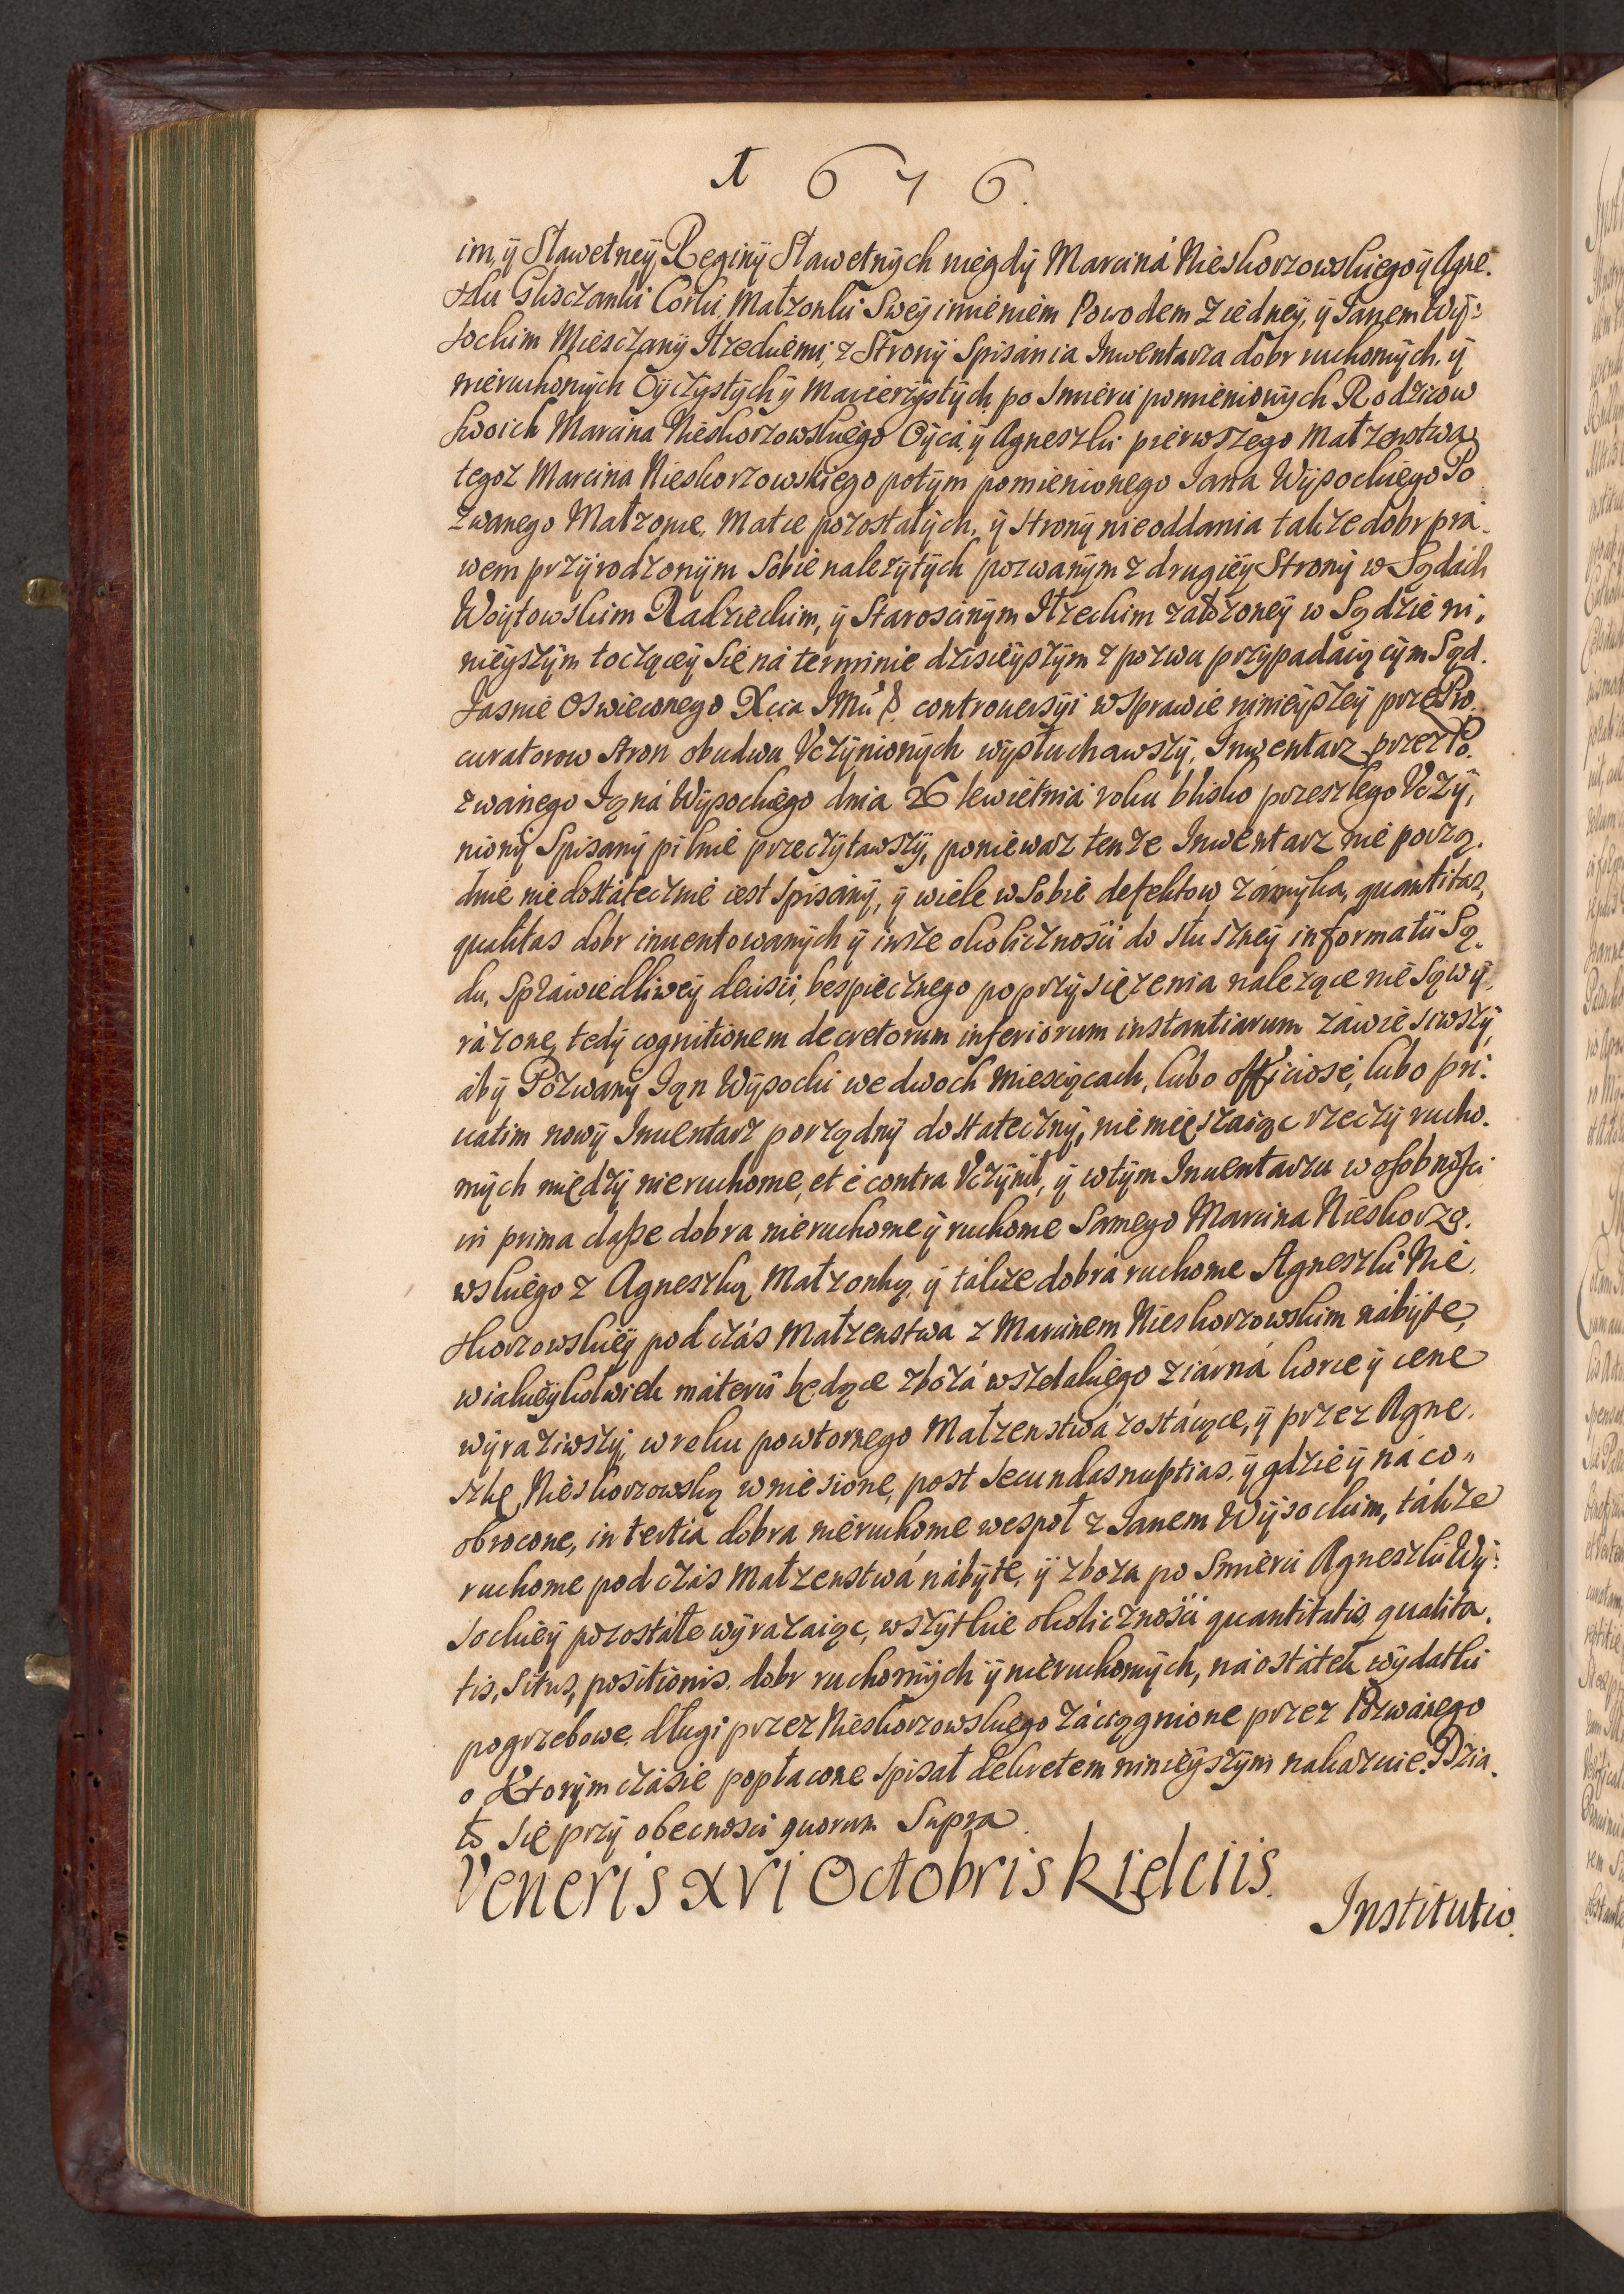 1676.
im, ÿ Sławetneÿ Reginÿ Sławetnÿch niegdÿ Marcina Nieskorzowskiego ÿ Agne.
szki Corki, Małzonki Sweÿ imieniem Powodem z iedneÿ, ÿ Janem Wÿ:
sockim Miesczanÿ Iłzeckiemi, z Stronÿ Spisania Inwentarza dobr ruchomÿch, ÿ
nieruchomÿch Oÿczÿstÿch ÿ Macierzÿstÿch, po Smierci pomienionÿch Rodzicow
swoich Marcina Nieskorzowskiego Oÿca, ÿ Agneszki pierwszego Małzenstwa
tegoz Marcina Nieskorzowskiego potÿm pomienionego Jana Wÿsockiego Po
zwanego Małzonce, Matce pozostałÿch, ÿ stronÿ nieoddania takze dobr pra.
wem przÿrodzonÿm Sobie nalezÿtÿch pozwanÿm z drugieÿ Stronÿ w Sądach
Woÿtowskim Radzieckim, ÿ Staroscinÿm Iłzeckim załozoneÿ w Sądzie ni,
nieÿszÿm toczącеÿ się na terminie dzisieÿszÿm z pozwu przÿpadaiącÿm Sąd.
Jasnie Oswieconego Xcia JMci P. controuersÿi w sprawie ninieÿszeÿ przez Pro.
curatorow stron obudwu Vczÿnionÿch wÿsłuchawszÿ, Inwentarz przez Po.
zwanego Jana Wÿsockiego dnia 26 kwietnia roku blisko przeszłego Vczÿ,
nionÿ Spisanÿ pilnie przeczÿtawszÿ, poniewaz tenze Inwentarz nie porzą.
dnie nie dostatecznie iest spisanÿ, ÿ wiele w Sobie defektow zamÿka, quantitas,
qualitas dobr inuentowanÿch ÿ insze okolicznosci do słuszneÿ informatii Są.
du, Sprawiedliweÿ decisii, bespiecznego poprzÿsięzenia nalezące nie Są wÿ.
razone, tedÿ cognitionem decretorum inferiorum instantiarum zawiesiwszÿ,
abÿ Pozwanÿ Jan Wÿsocki we dwoch miesiącach, lubo officiose, lubo pri:
uatim nowÿ Inuentarz porządnÿ dostatecznÿ, nie mięszaiąc rzeczÿ rucho.
mÿch międzÿ nieruchome, et e contra Vczÿnił, ÿ w tÿm Inuentarzu w osobnosci
in prima classe dobra nieruchome ÿ ruchome Samego Marcina Nieskorzo.
wskiego z Agneszką Małzonką, ÿ takze dobra ruchome Agneszki Nie.
skorzowskieÿ pod czas Małzenstwa z Marcinem Nieskorzowskim nabÿte,
w iakieÿkolwiek materii będące zboza wszelakiego ziarna korce ÿ cene
wÿraziwszÿ, w reku powtornego Małzenstwa zostaiące, ÿ przez Agne.
szkę Nieskorzowską wniesione, post secundas nuptias, ÿ gdzie ÿ na co"
obrocone, in tertia dobra nieruchome wespoł z Janem Wÿsockim, takze
ruchome pod czas Małzenstwa nabÿte, ÿ zboza po Smierci Agneszki Wÿ:
sockieÿ pozostałe wÿrazaiąc, wszÿtkie okolicznosci quantitatis, qualita.
tis, situs, positionis, dobr ruchomÿch ÿ nieruchomÿch, na ostatek wÿdatki
pogrzebowe, długi przez Nieskorzowskiego zaciągnione przez Pozwanego
o ktorÿm czasie popłacone spisał dekretem ninieÿszÿm nakazuie. Dzia.
ło się przÿ obecnosci quorum Supra.
Veneris xvi Octobris Kielciis.
Institutio.